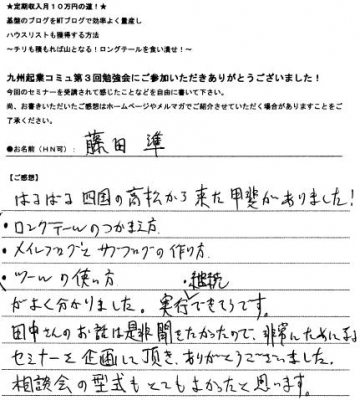 ★定期収入月10万円の道!★
基盤のブログをMTブログで効率よく量産し
ハウスリストも獲得する方法
~チリも積もれば山となる!ロングテールを食い潰せ!~
九州起業コミュ第3回勉強会にご参加いただきありがとうございました!
今回のセミナーを受講されて感じたことなどを自由に書いて下さい。
尚、お書きいただいたご感想はホームページやメルマガでご紹介させていただく場合がありますことをご
了承ください。
●お名前(HN可): 藤田 準
【ご感想】
はるばる四国の高松から来た甲斐がありました!
・ロングテールのつかまえ方
・メインブログとサブブログの作り方
・ツールの使い方 ・継続
がよく分かりました。実行できそうです。
田中さんのお話は是非聞きたかったので、非常にためになる
セミナーを企画して頂き、ありがとうございました。
相談会の型式もとてもよかったと思います。